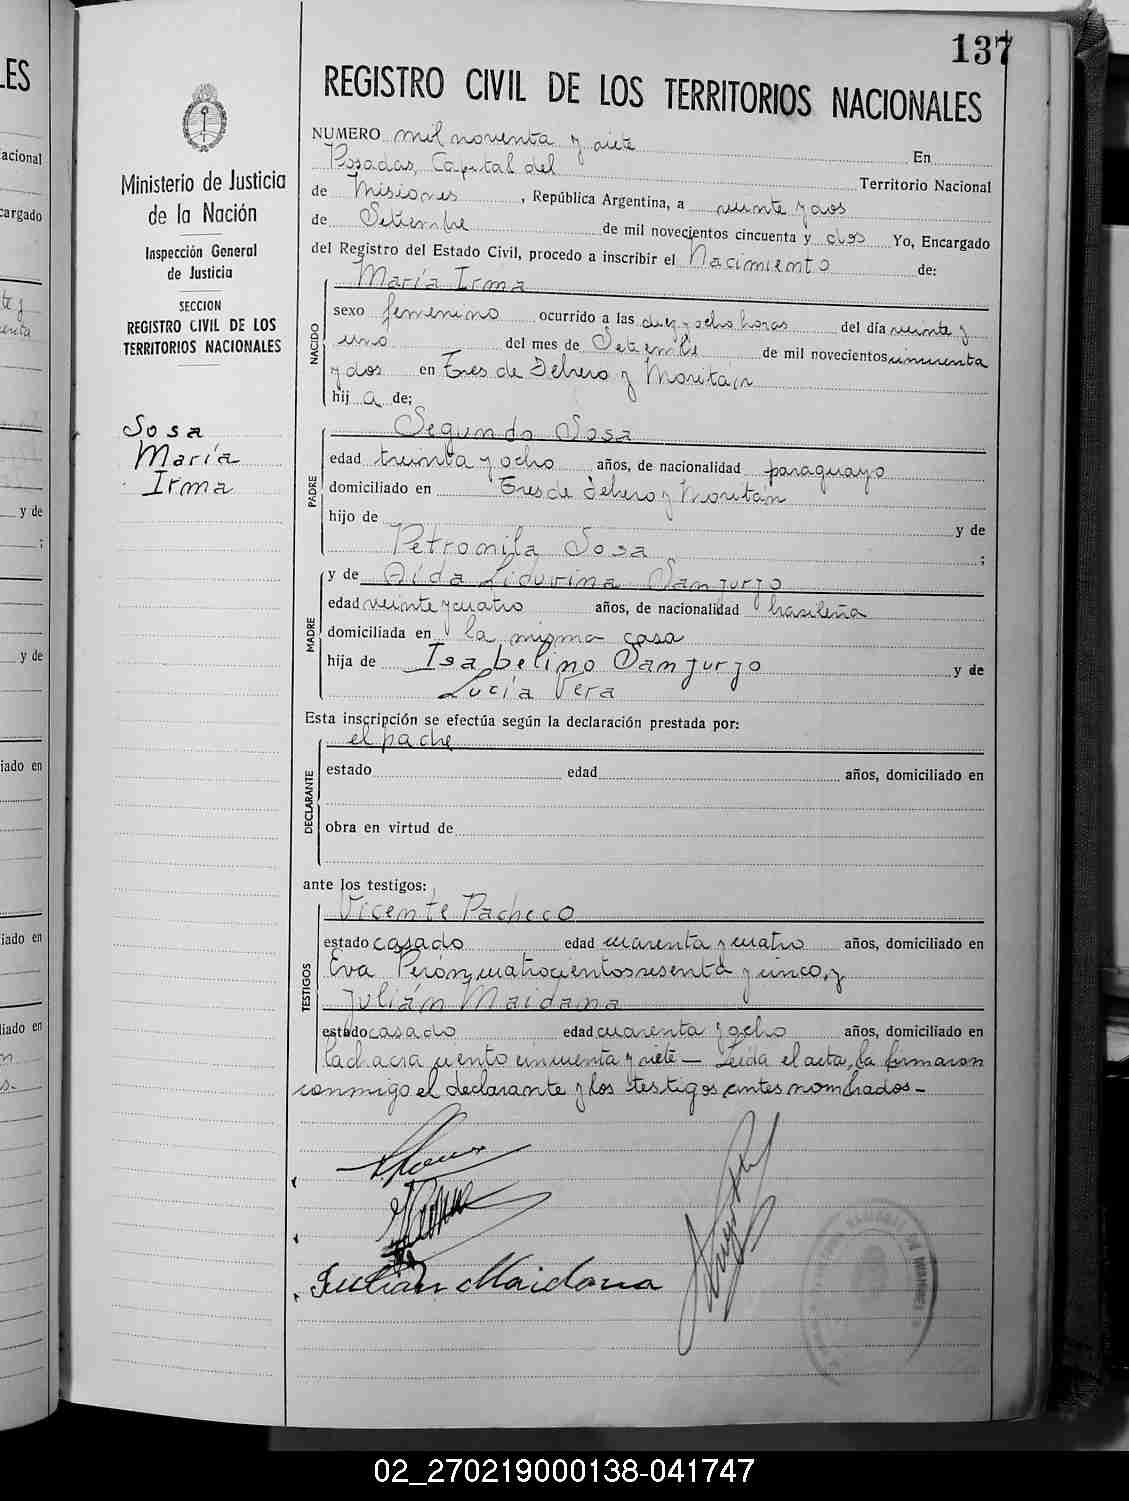 137
REGISTRO CIVIL DE LOS TERRITORIOS NACIONALES
Ministerio de Justicia
de la Nación
Inspección General
de Justicia
SECCION
REGISTRO CIVIL DE LOS
TERRITORIOS NACIONALES
Sosa
María
Irma
NUMERO mil noventa y siete En
Posadas, Capital del Territorio Nacional
de Misiones, República Argentina, a veinte y dos
de Setiembre de mil novecientos cincuenta y dos Yo, Encargado
del Registro del Estado Civil, procedo a inscribir el Nacimiento de:
María Irma
NACIDO
sexo femenino ocurrido a las diez y ocho horas del día veinte y
uno del mes de Setiembre de mil novecientos cincuenta
y dos en Tres de Febrero y Moritán
hij a de;
Segundo Sosa
PADRE
edad treinta y ocho años, de nacionalidad paraguayo
domiciliado en Tres de Febrero y Moritán
hijo de y de
Petronila Sosa ;
y de Aida Liduvina Sanjurjo
MADRE
edad veinte y cuatro años, de nacionalidad brasileña
domiciliada en la misma casa
hija de Isabelino Sanjurjo y de
Lucía Vera
Esta inscripción se efectúa según la declaración prestada por:
el padre
DECLARANTE
estado edad años, domiciliado en
obra en virtud de
ante los testigos:
Vicente Pacheco
TESTIGOS
estado casado edad cuarenta y cuatro años, domiciliado en
Eva Perón cuatrocientos sesenta y cinco, y
Julián Maidana
estado casado edad cuarenta y ocho años, domiciliado en
la chacra ciento cincuenta y siete — Leída el acta, la firmaron
conmigo el declarante y los testigos antes nombrados -
Julian Maidana
02_270219000138-041747